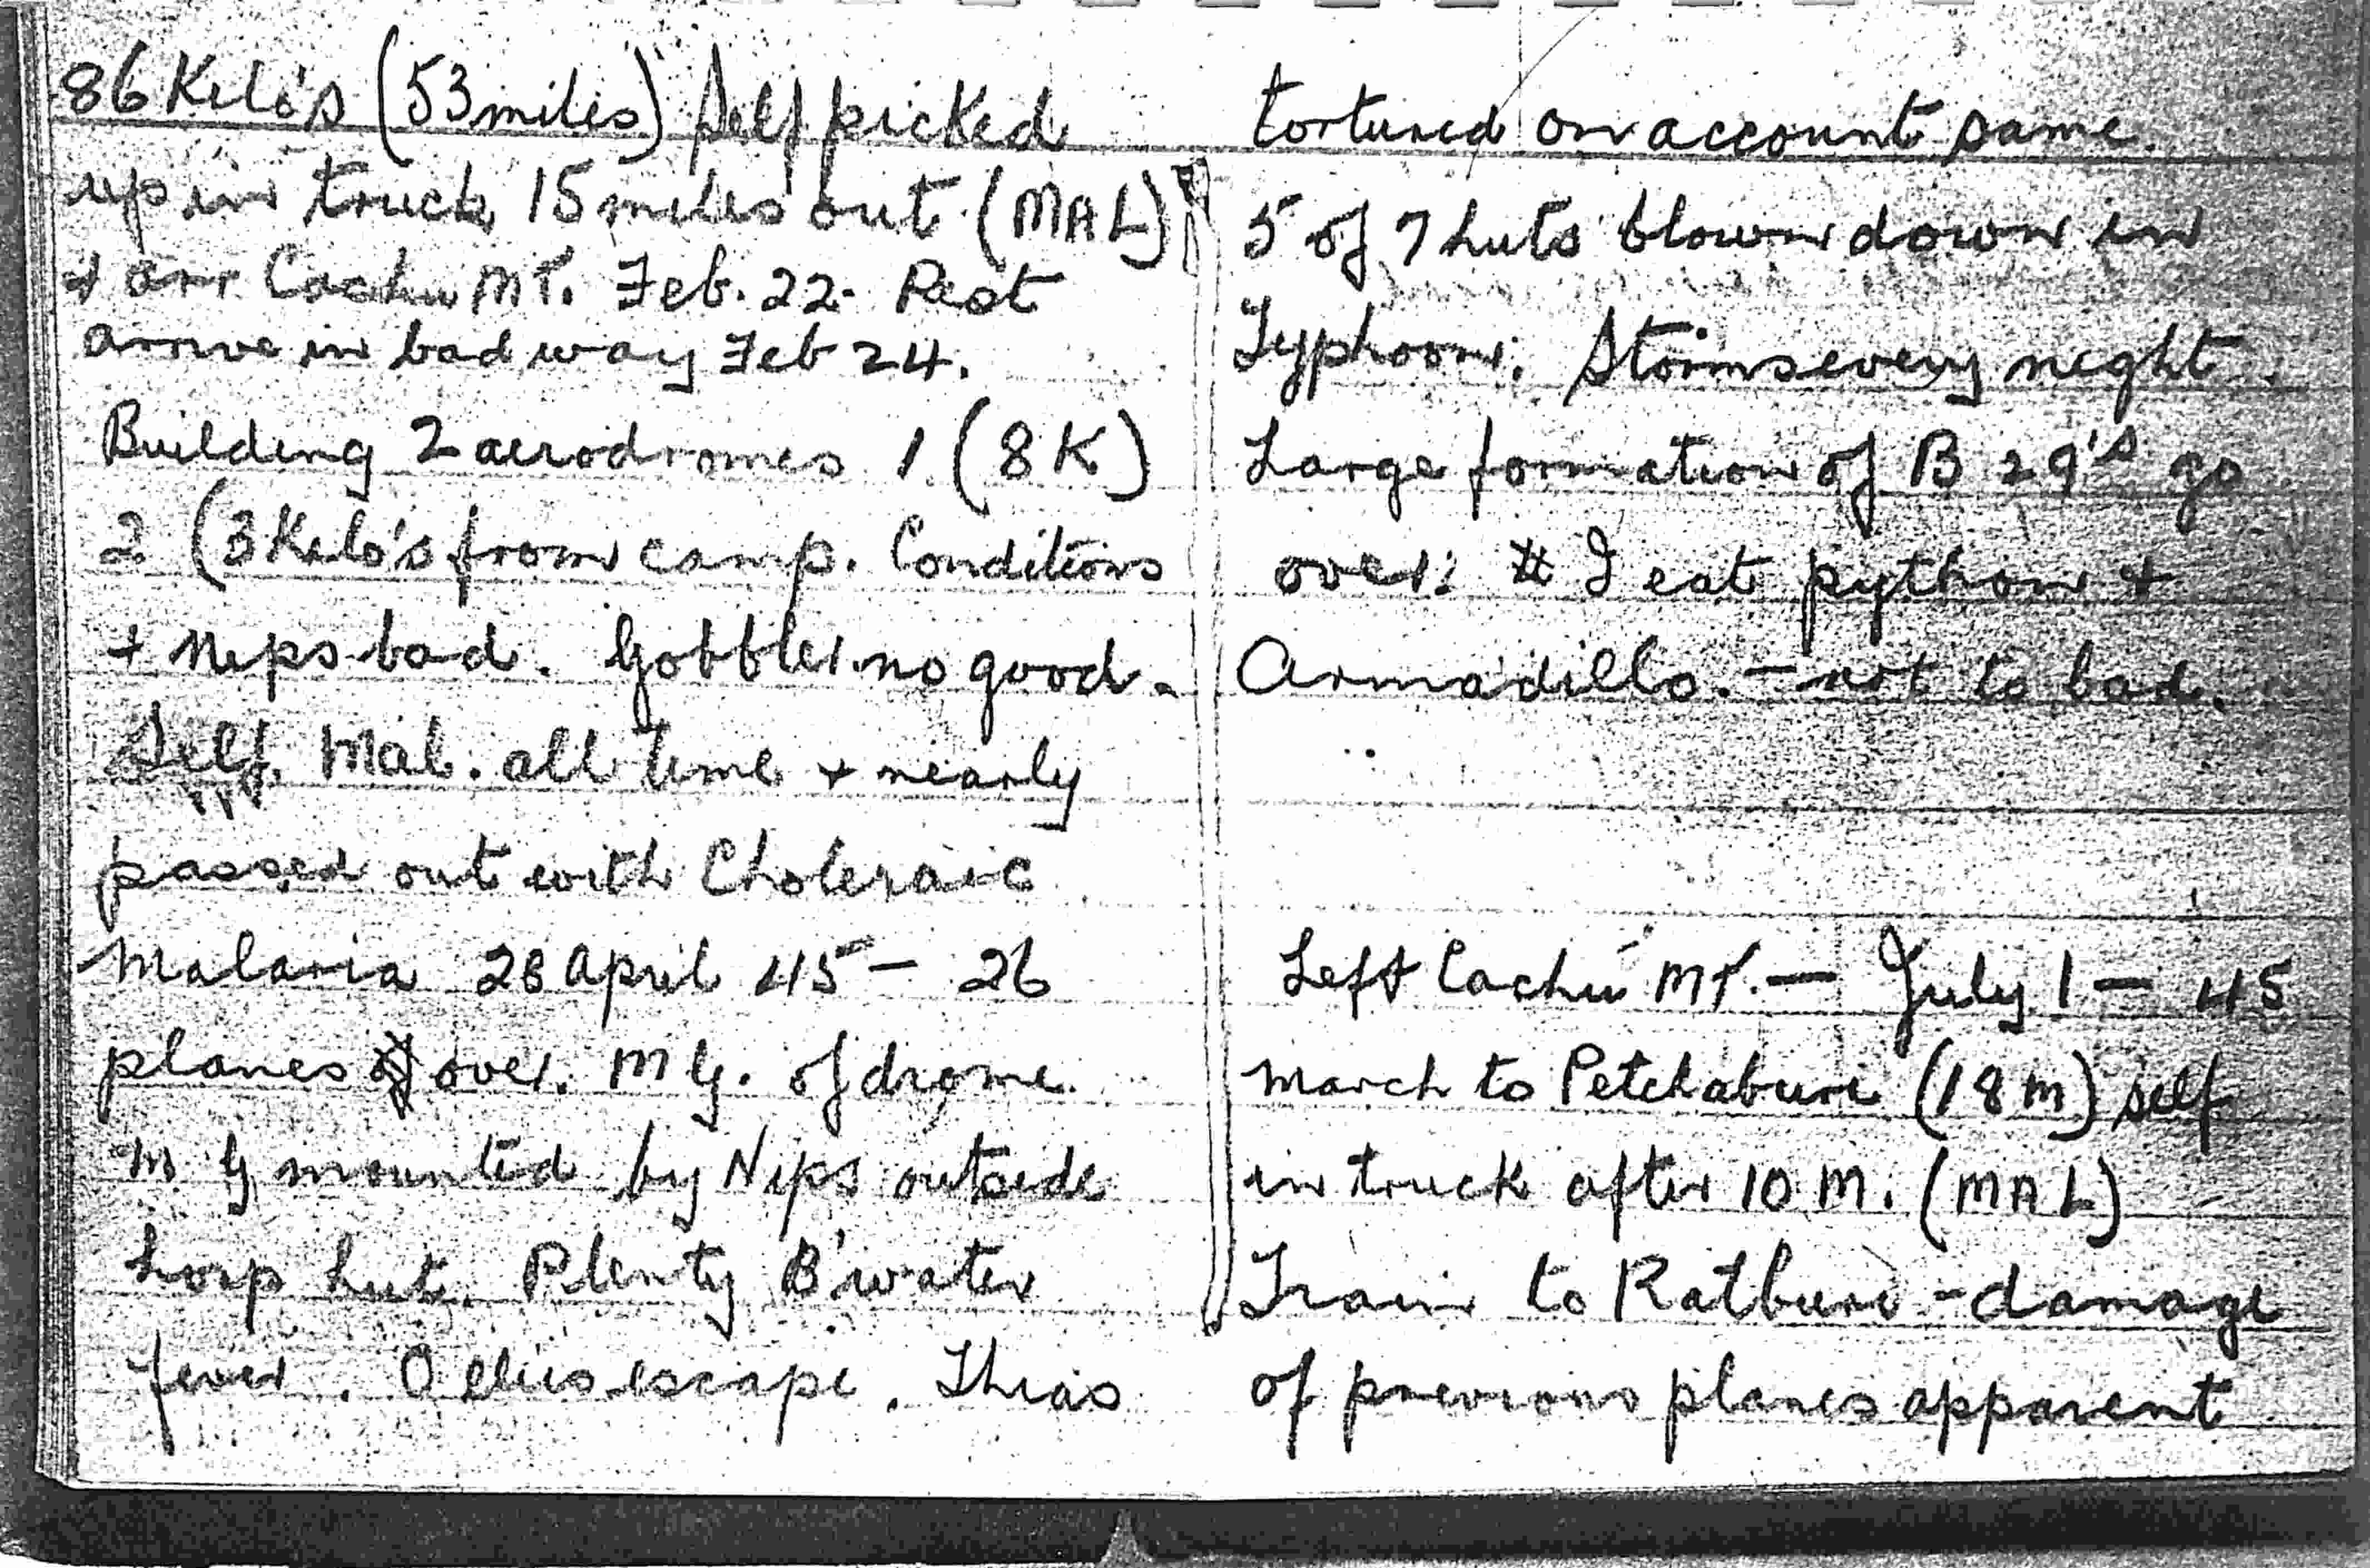 86 Kilo's (53 miles) Self picked
up in truck 15 miles out (MAL)
+ arr. Cachu MT. Feb. 22. Rest
arrive in bad way Feb 24.
Building 2 aerodromes 1 (8 K)
2 (3 Kilo's from camp. Conditions
+ Nips bad. Gobbler no good.
Self. Mal. all time + nearly
passed out with Choleraic
Malaria 28 April 45 - 26
planes over. M G. of drome.
M G mounted by Nips outside
hosp hut. Plenty B'water
fever. O escape. Thias
tortured on account same.
5 of 7 huts blown down in
Typhoon. Storms every night.
Large formation of B 29's go
over: I eat python +
Armadillo. - not to bad.
Left Cachu MT. - July 1 - 45
March to Petchaburi (18 m) self
in truck after 10 M. (MAL)
Train to Ratburi - damage
of previous planes apparent